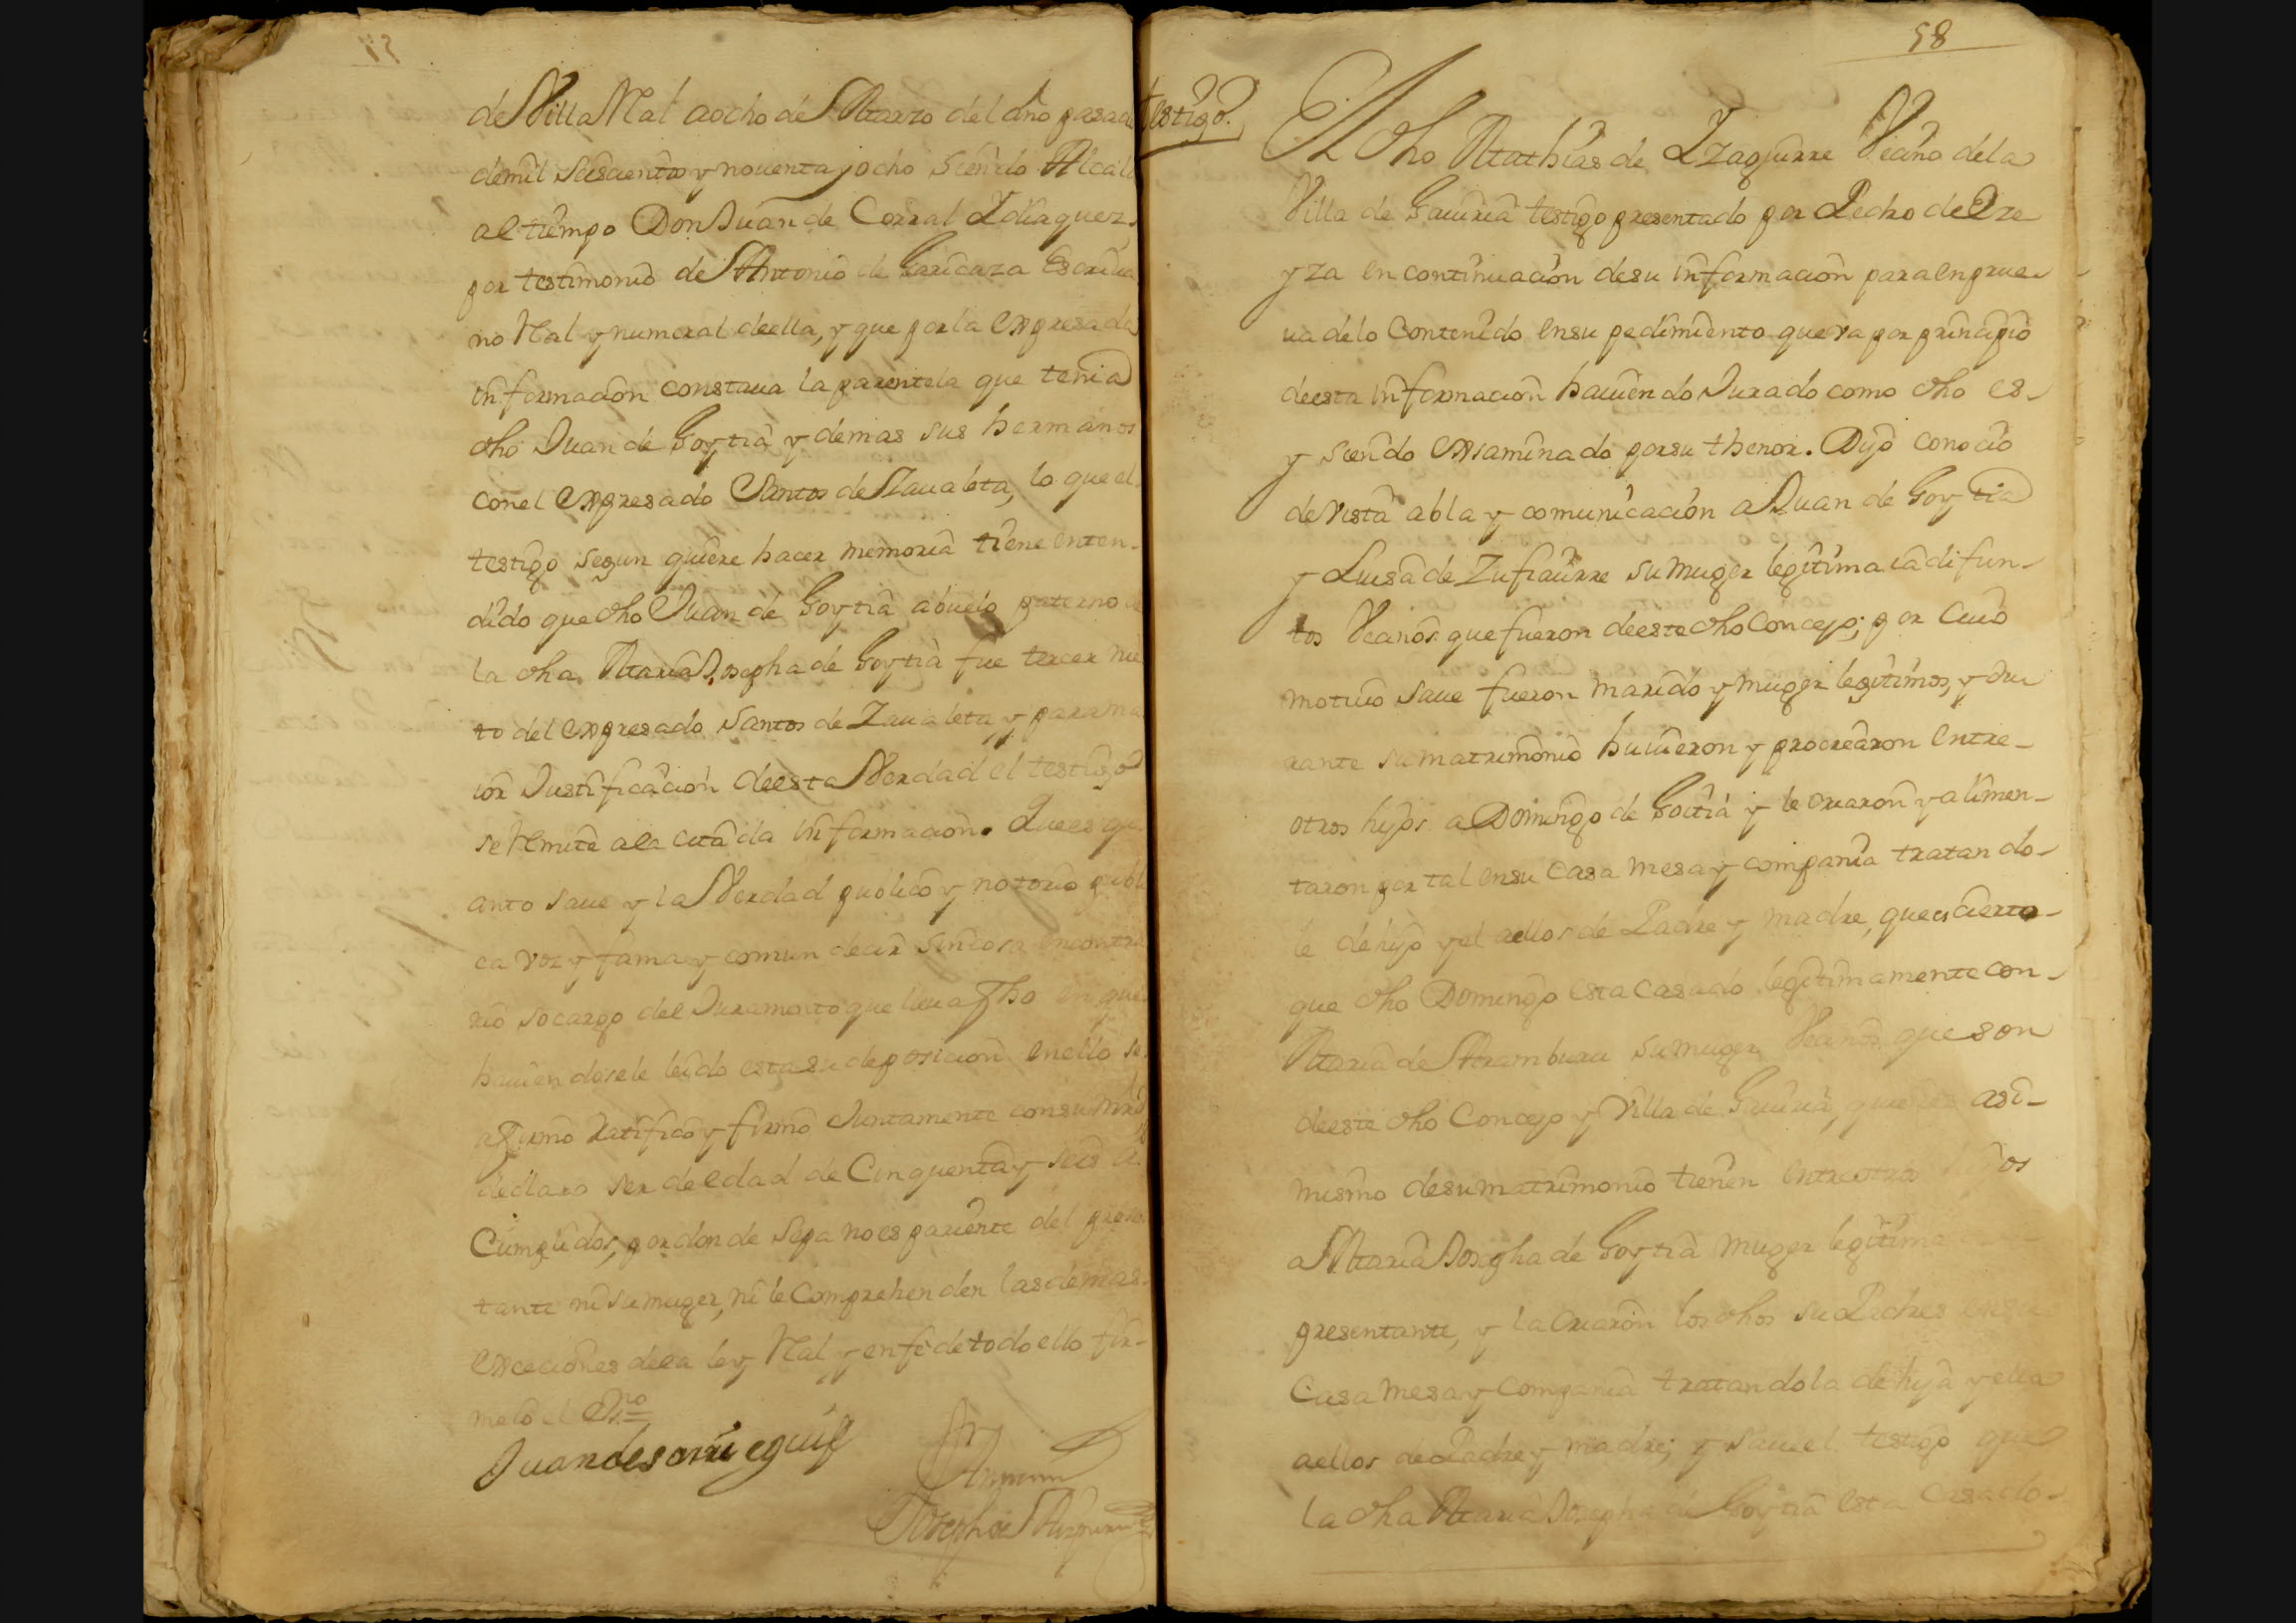 de Villa Ral a ocho de Marzo del año pasado
de mil seiscientos y nouenta y ocho siendo Alcalde
al tiempo Don Juan de Corral Ydiaquez
por testimonio de Antonio de Garicaza Escriua
no Ral y numeral de ella, y que por la expresada
informacion constaua la parentela que tenia
dho Juan de Goytia y demas sus hermanos
con el expresado Santos de Zaualeta, lo que el
testigo segun quiere hacer memoria tiene enten-
dido que dho Juan de Goytia abuelo paterno de
la dha Maria Josepha de Goytia fue tercer nie
to del expresado Santos de Zaualeta, y para ma
ior Justificacion de esta Verdad el testigo
se Remite a la citada informacion. Que es qu
anto saue y la Verdad publico y notorio publi
ca voz y fama y comun decir sin cosa en contra
rio so cargo del Juramento que lleua fho en que
hauiendosele leido esta su deposicion en ello se
afirmo ratifico y firmo Juntamente con su mrd
declaro ser de edad de Cinquenta y seis a
Cumplidos, por donde sepa no es pariente del presen
tante ni su muger, ni le Comprehenden las demas
excepciones de la ley Ral y en fe de todo ello fir-
me io el Sno
Juan de
Joseph de
58
testigo.
El dho Mathias de Yzaguirre Vecino de la
Villa de Gauiria testigo presentado por Pedro de Ore
yza en continuacion de su informacion para en prue-
ua de lo Contenido en su pedimiento que va por principio
de esta informacion hauiendo Jurado como dho es-
y siendo exsaminado por su thenor. Dijo conocio
de vista abla y comunicacion a Juan de Goytia
y Luisa de Zufiaurre su muger legitima ia difun-
tos Vecinos que fueron de este dho Concejo; por Cuio
motiuo saue fueron marido y muger legitimos, y du
rante su matrimonio huuieron y procrearon entre-
otros hijos a Domingo de Goitia y le criaron y alimen-
taron por tal en su Casa mesa y compania tratando-
le de hijo y el a ellos de Padre y madre, que es cierto-
que dho Domingo esta Casado legitimamente con-
Maria de Aramburu su muger Vecinos que son
de este dho Concejo y Villa de Gauiria, quienes asi-
mismo de su matrimonio tienen entre otros hijos
a Maria Josepha de Goytia muger legitima
presentante, y la Criaron los dhos su Padres en su
Casa mesa y Compania tratandola de hija y ella
a ellos de Padre y madre; y saue el testigo que
la dha Maria Josepha de Goytia esta Casado-